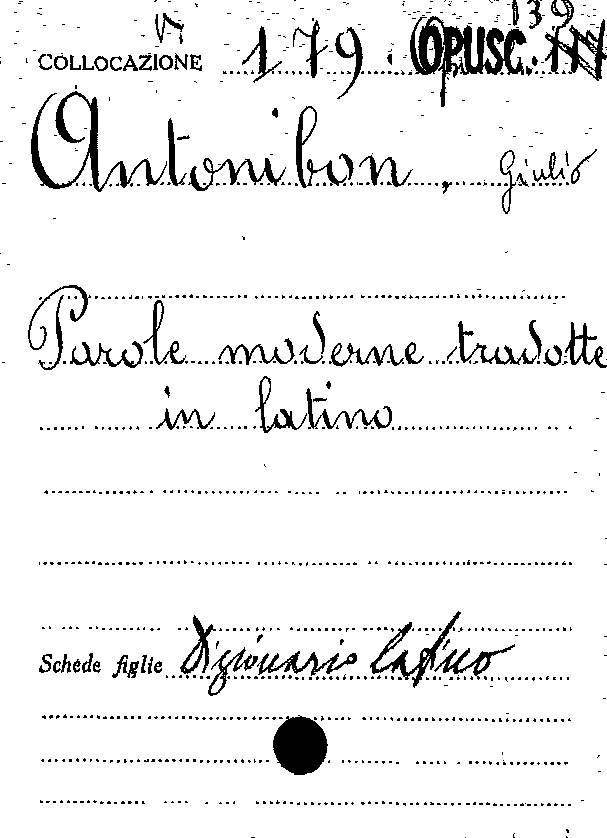 139
VI
COLLOCAZIONE 179. OPUSC.
Antonibon, Giulio
Parole moderne tradotte
in latino
Schede figlie Dizionario latino